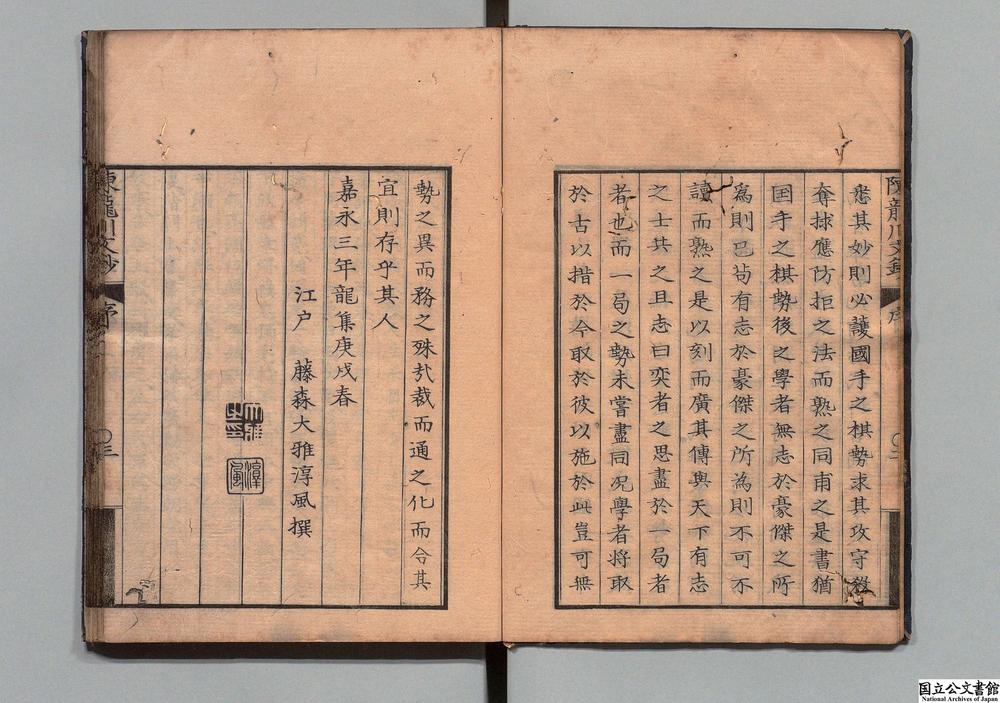 悉其妙則必護國手之棋勢求其攻守殺
奪救應防拒之法而熟之同甫之是書猶
国手之棋勢後之學者無志於豪傑之所
為則已苟有志於豪傑之所為則不可不
讀而熟之是以刻而廣其傳與天下有志
之士共之且志曰奕者之思盡於一局者
者也而一局之勢未嘗盡同况學者将取
於古以措於今取於彼以施於此豈可無
陳龍川文鈔
序
勢之異而務之殊㢤裁而通之化而合其
宜則存乎其人
嘉永三年龍集庚戌春
江户 藤森大雅淳風撰
淳風
陳龍川文鈔
序
〇三
国立公文書館
National Archives of Japan